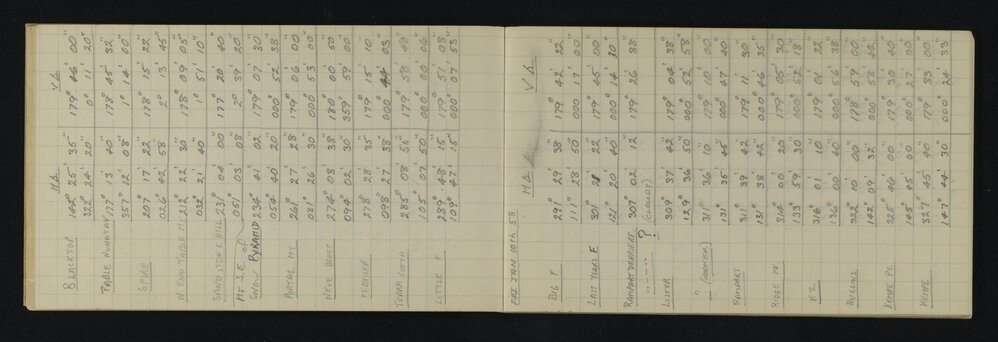 H∆ V∆
BLACKTOP 142° 25' 35" 179° 46' 00"
322° 24' 20" 0° 11' 20"
TABLE NUNATAK 177° 13' 40" 178° 45' 32"
357° 12' 08" 1° 14' 00"
SPIRE 207° 17' 22" 178° 15' 22"
026° 42' 58" 2° 13' 45"
N. END TABLE MT 212° 22' 30" 178° 09' 05"
032° 21' 40" 1° 51' 10"
SANDSTONE HILL 231° 04' 00" 177° 20' 40"
MT S.E. OF 051° 03' 08" 2° 39' 20"
SNOW PYRAMID 234° 41' 02" 179° 07' 30"
054° 40' 20" 000° 52' 38"
PORTAL MT 261° 27' 28" 179° 06' 00"
081° 26' 30" 000° 53' 00"
NEVE BLUFF 274° 03' 38" 180° 00' 50"
094° 02' 30" 359° 59' 00"
FEATHER 278° 28' 35" 179° 15' 10"
098° 27' 38" 000 44 03
TERRA COTTA 285° 08' 55" 179° 58' 49"
105° 07' 50" 000° 00' 06"
LITTLE F 289° 48' 15" 179° 51' 03"
109° 47' 15" 000° 07' 53"
FRI JAN 10th 58
H∆ V∆
BIG F 291° 29' 38" 179 42 22
111° 28' 50" 000 17 00
LAST YEARS F 301° 21 22 179° 45' 00"
121° 20' 40" 000° 14' 30"
RAMPART DERRIERE 307° 02' 12" 179° 26' 38"
? (CLOUDY)
LISTER 309° 37' 42" 179° 04' 38"
129° 36' 50" 000° 52' 58"
? (HOOKER) 311° 36' 10" 179° 10' 00"
131° 35' 45" 000° 47' 40"
RAMPART 311° 39' 42" 179° 11' 30"
131° 38' 42" 000° 46' 35"
RIDGE PK. 314° 00' 20" 179° 05' 30"
133° 59' 30" 000° 52' 18"
X2 316° 01' 10" 179° 01' 22"
136° 00' 40" 000° 56' 38"
HUGGINS 322° 10' 00" 178° 59' 00"
142° 09' 32" 000° 58' 42"
KEMPE PK. 325° 46' 00" 179° 30' 40"
145° 45' 00" 000° 27' 00"
KEMPE 327° 45' 40" 179° 33' 00"
147° 44' 30" 000° 24' 33"